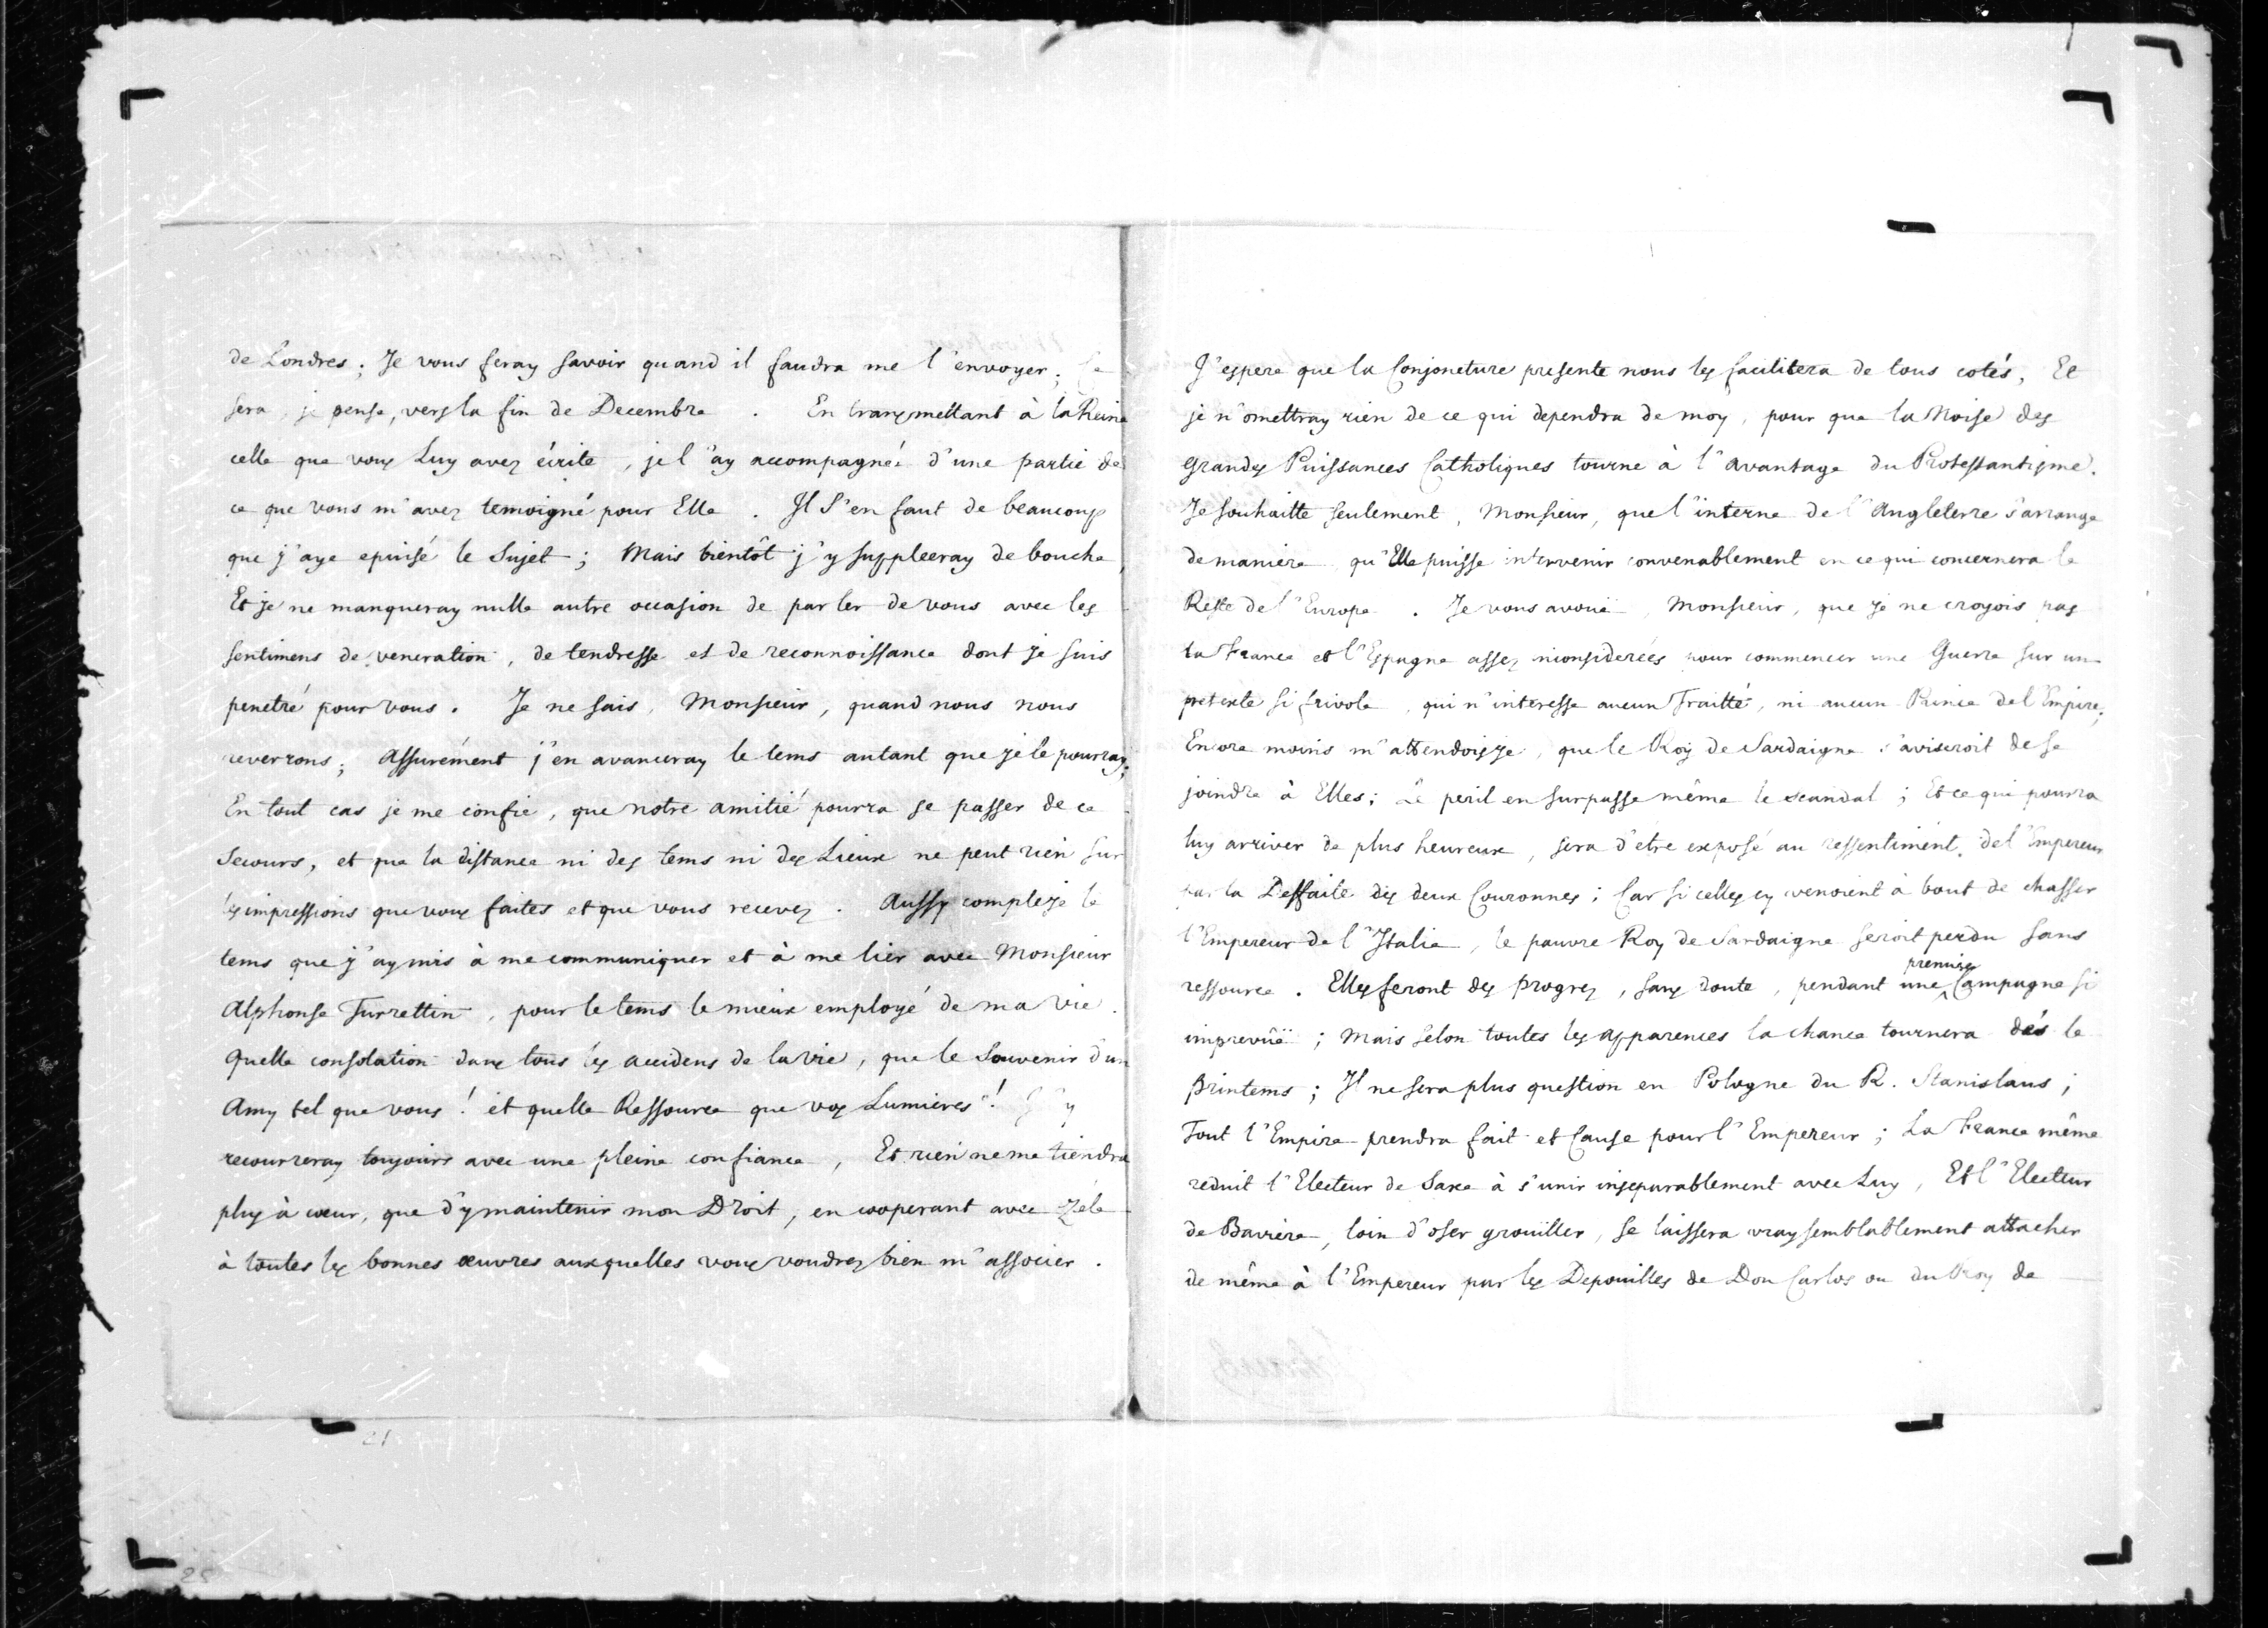 de Londres; Je vous feray savoir quand il faudra me l'envoyer; Ce
sera, je pense, vers la fin de Decembre. En transmettant à la Reine
celle que vous Luy avez écrite, je l'ay accompagnée d'une partie de
ce que vous m'avez temoigné pour Elle. Il S'en faut de beaucoup
que j'aye epuisé le Sujet; Mais bientôt j'y suppleeray de bouche,
Et je ne manqueray nulle autre occasion de parler de vous avec les
sentimens de veneration, de tendresse et de reconnoissance dont je suis
penetré pour vous. Je ne sais, Monsieur, quand nous nous
reverrons; Assurément j'en avanceray le tems autant que je le pourray;
En tout cas je me confie, que notre amitié pourra se passer de ce
Secours, et que la distance ni des tems ni des Lieux ne peut rien sur
les impressions que vous faites et que vous recevez. Aussy compteje le
tems que j'ay mis à me communiquer et à me lier avec Monsieur
Alphonse Turrettin, pour le tems le mieux employé de ma vie.
Quelle consolation dans tous les accidens de la vie, que le Souvenir d'un
Amy tel que vous! et quelle Ressource que vos Lumieres! J'y
recourreray toujours avec une pleine confiance, Et rien ne me tiendra
plus à cœur, que d'y maintenir mon Droit, en cooperant avec Zéle
à toutes les bonnes œuvres auxquelles vous voudrez bien m'associer.
J'espere que la Conjoncture presente nous les facilitera de tous cotés, Et
je n'omettray rien de ce qui dependra de moy, pour que la Noise des
grandes Puissances Catholiques tourne à l'avantage du Protestantisme.
Je souhaitte seulement, Monsieur, que l'interne de l'Angleterre s'arrange
de maniere qu'Elle puisse intervenir convenablement en ce qui concernera le
Reste de l'Europe. Je vous avouë, Monsieur, que je ne croyois pas
la France et l'Espagne assez inconsiderées pour commencer une Guerre sur un
pretexte si frivole, qui n'interesse aucun Traitté, ni aucun Prince de l'Empire;
Encore moins m'attendoisje, que le Roy de Sardaigne s'aviseroit de se
joindre à Elles; Le peril en surpasse même le scandal; Et ce qui pourra
luy arriver de plus heureux, sera d'etre exposé au ressentiment de l'Empereur
par la Deffaite des deux Couronnes; Car si celles cy venoient à bout de chasser
l'Empereur de l'Italie, le pauvre Roy de Sardaigne seroit perdu sans
ressource. Elles feront des progrez, sans doute, pendant une premiere Campagne si
imprevûë; Mais selon toutes les apparences la chance tournera dés le
Printems; Il ne sera plus question en Pologne du R. Stanislaus;
Tout l'Empire prendra fait et Cause pour l'Empereur; La France même
reduit l'Electeur de Saxe à s'unir inseparablement avec Luy, Et l'Electeur
de Baviere, loin d'oser grouïller, se laissera vraysemblablement attacher
de même à l'Empereur par les Depouilles de Don Carlos ou du Roy de
21
25